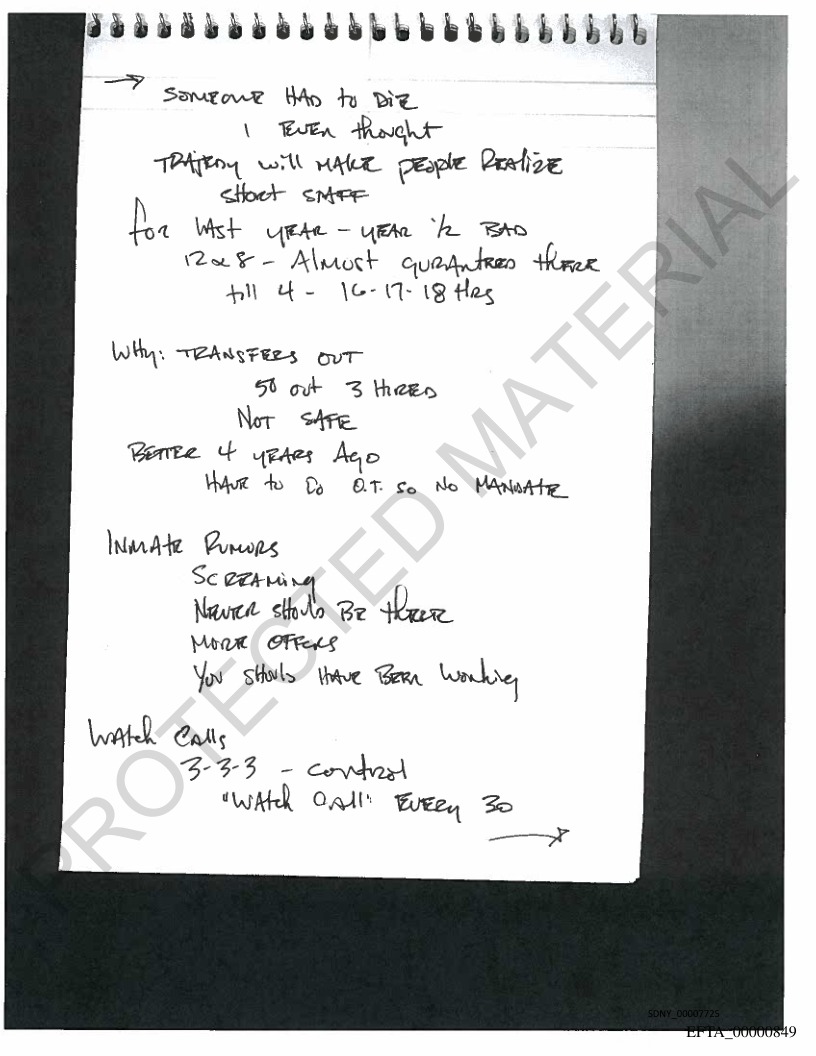 →
SOMEONE HAD to DIE
I EVEN thought
TRAJEDY will MAKE people REALIZE
SHORT STAFF
for LAST YEAR - YEAR 1/2 BAD
12 or 8 - Almost gurAnteed there
till 4 - 16-17-18 Hrs
Why: TRANSFERS OUT
50 out 3 HIRED
NOT SAFE
BETTER 4 YEARS AGO
HAVE to Do O.T. So No MANDATE
INMATE RUMORS
SCREAMING
NEVER should BE there
MORE OFFCRS
You should HAVE BEEN working
WAtch CAlls
3-3-3 - control
"WAtch CAll" EVERY 30
→
PROTECTED MATERIAL
SDNY_00007725
EFTA_00000849